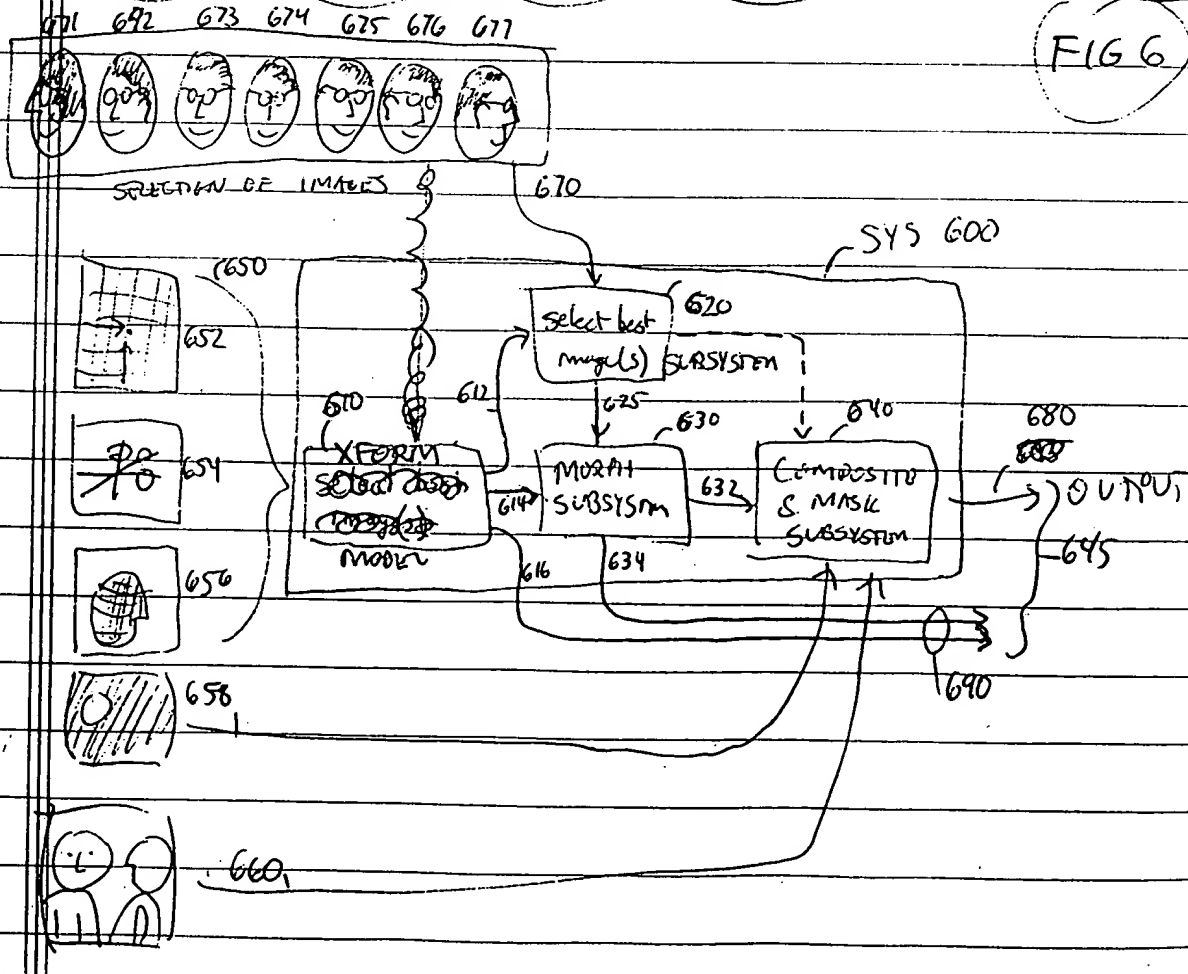 671 692 673 674 675 676 677
FIG 6
SELECTION OF IMAGES
670
SYS 600
650
652
620
select best
image(s) SUBSYSTEM
612
625
610
630
640
680
654
XFORM
MODEL
614
MORPH
SUBSYSTEM
632
COMPOSITE
& MASK
SUBSYSTEM
OUTPUT
645
656
616
634
690
658
660